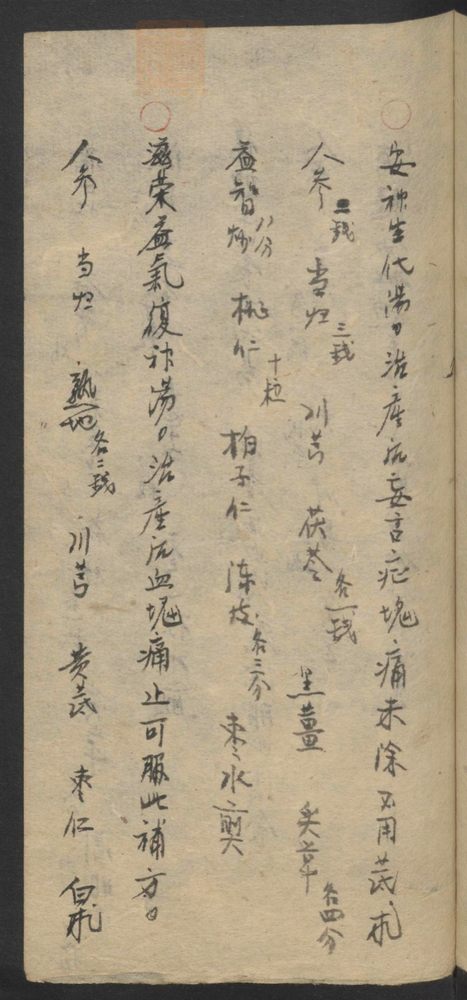 ○安神生化湯。治產后妄言症塊痛未除不用芪朮
人参二錢 当归三錢 川芎 茯苓各一錢 黑薑 炙草各四分
益智炒八分 桃仁十粒 柏子仁 陈皮各三分 枣水煎
○滋荣益氣復神湯。治產后血塊痛止可服此補方。
人参 当归 熟地各二錢 川芎 黄芪 枣仁 白朮